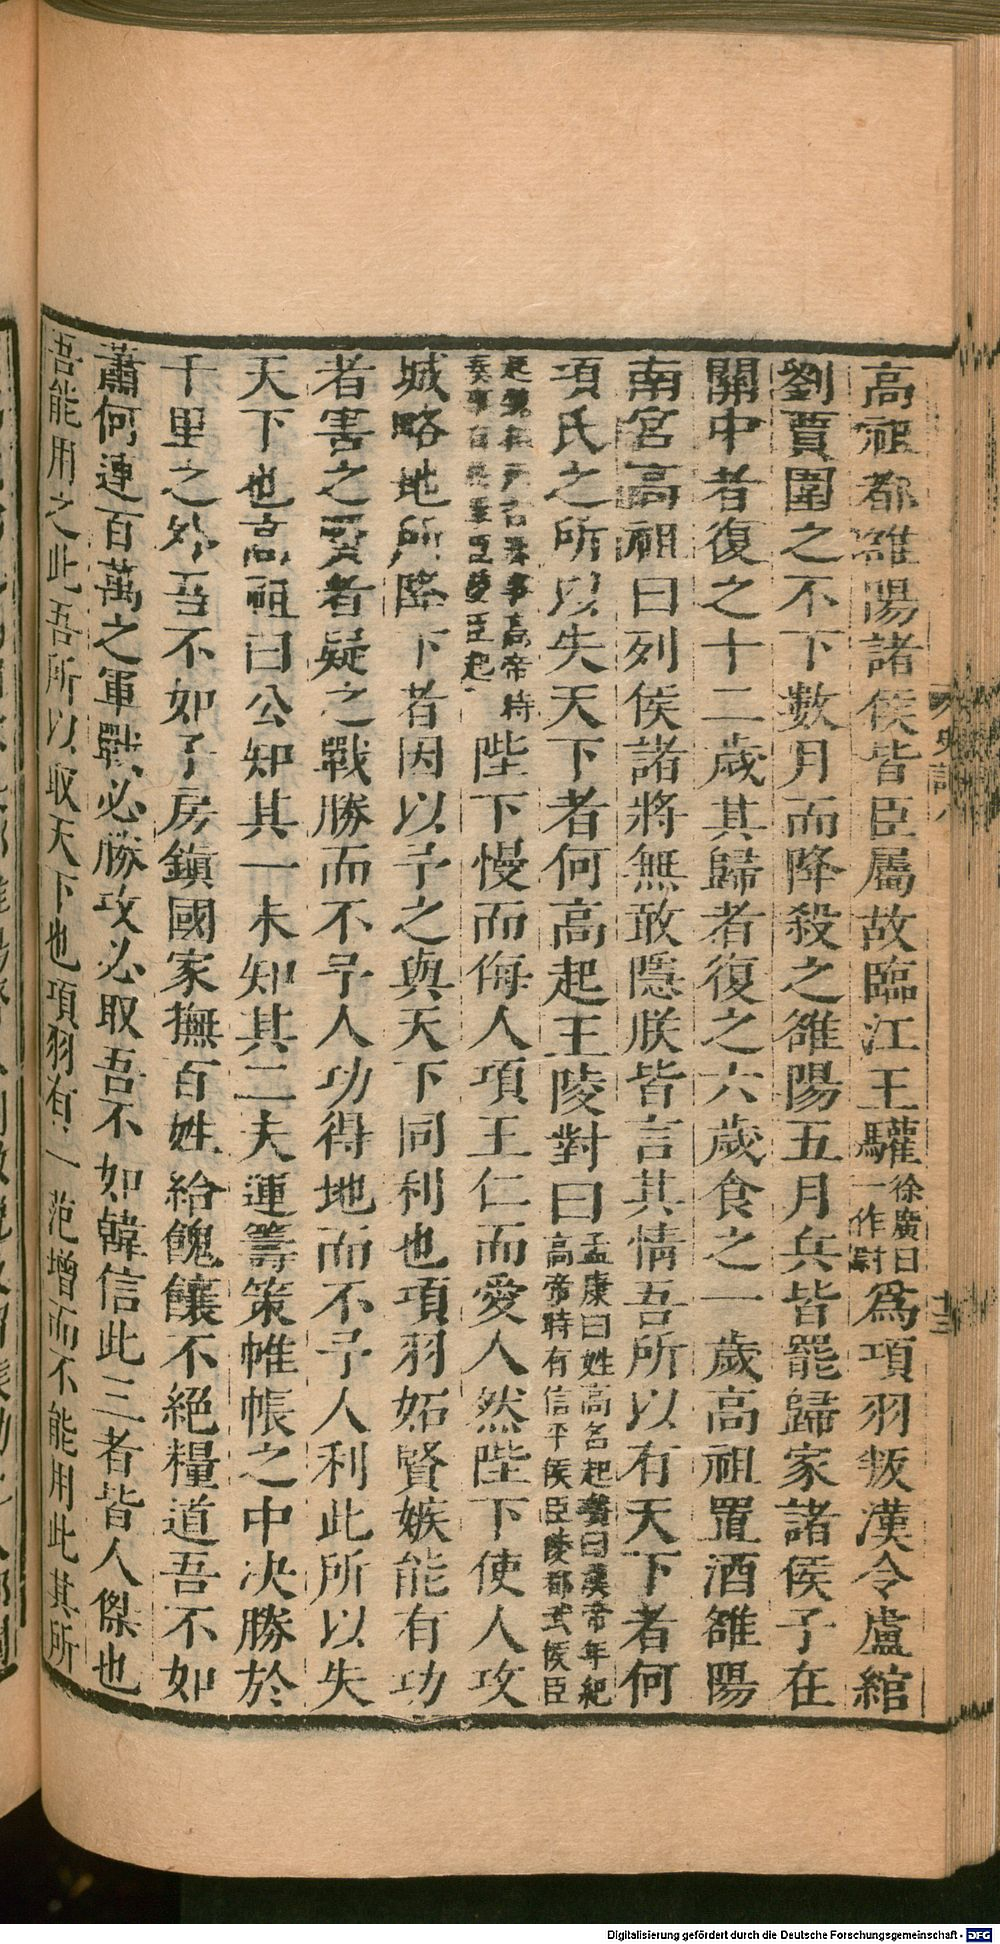 高祖都雒陽諸侯皆臣屬故臨江王驩徐廣曰一作尉爲項羽叛漢令盧綰
劉賈圍之不下數月而降殺之雒陽五月兵皆罷歸家諸侯子在
關中者復之十二歲其歸者復之六歲食之一歲高祖置酒雒陽
南宮高祖曰列侯諸將無敢隱朕皆言其情吾所以有天下者何
項氏之所以失天下者何高起王陵對曰孟康曰姓高名起瓚曰漢帝年紀高帝時有信平侯臣陵都武侯臣
起魏相丙吉奏事高帝時奏事有將軍臣陵臣起陛下慢而侮人項王仁而愛人然陛下使人攻
城略地所降下者因以予之與天下同利也項羽妬賢嫉能有功
者害之賢者疑之戰勝而不予人功得地而不予人利此所以失
天下也高祖曰公知其一未知其二夫運籌策帷帳之中決勝於
千里之外吾不如子房鎮國家撫百姓給餽饟不絕糧道吾不如
蕭何連百萬之軍戰必勝攻必取吾不如韓信此三者皆人傑也
吾能用之此吾所以取天下也項羽有一范增而不能用此其所
史記八
Digitalisierung gefördert durch die Deutsche Forschungsgemeinschaft - DFG